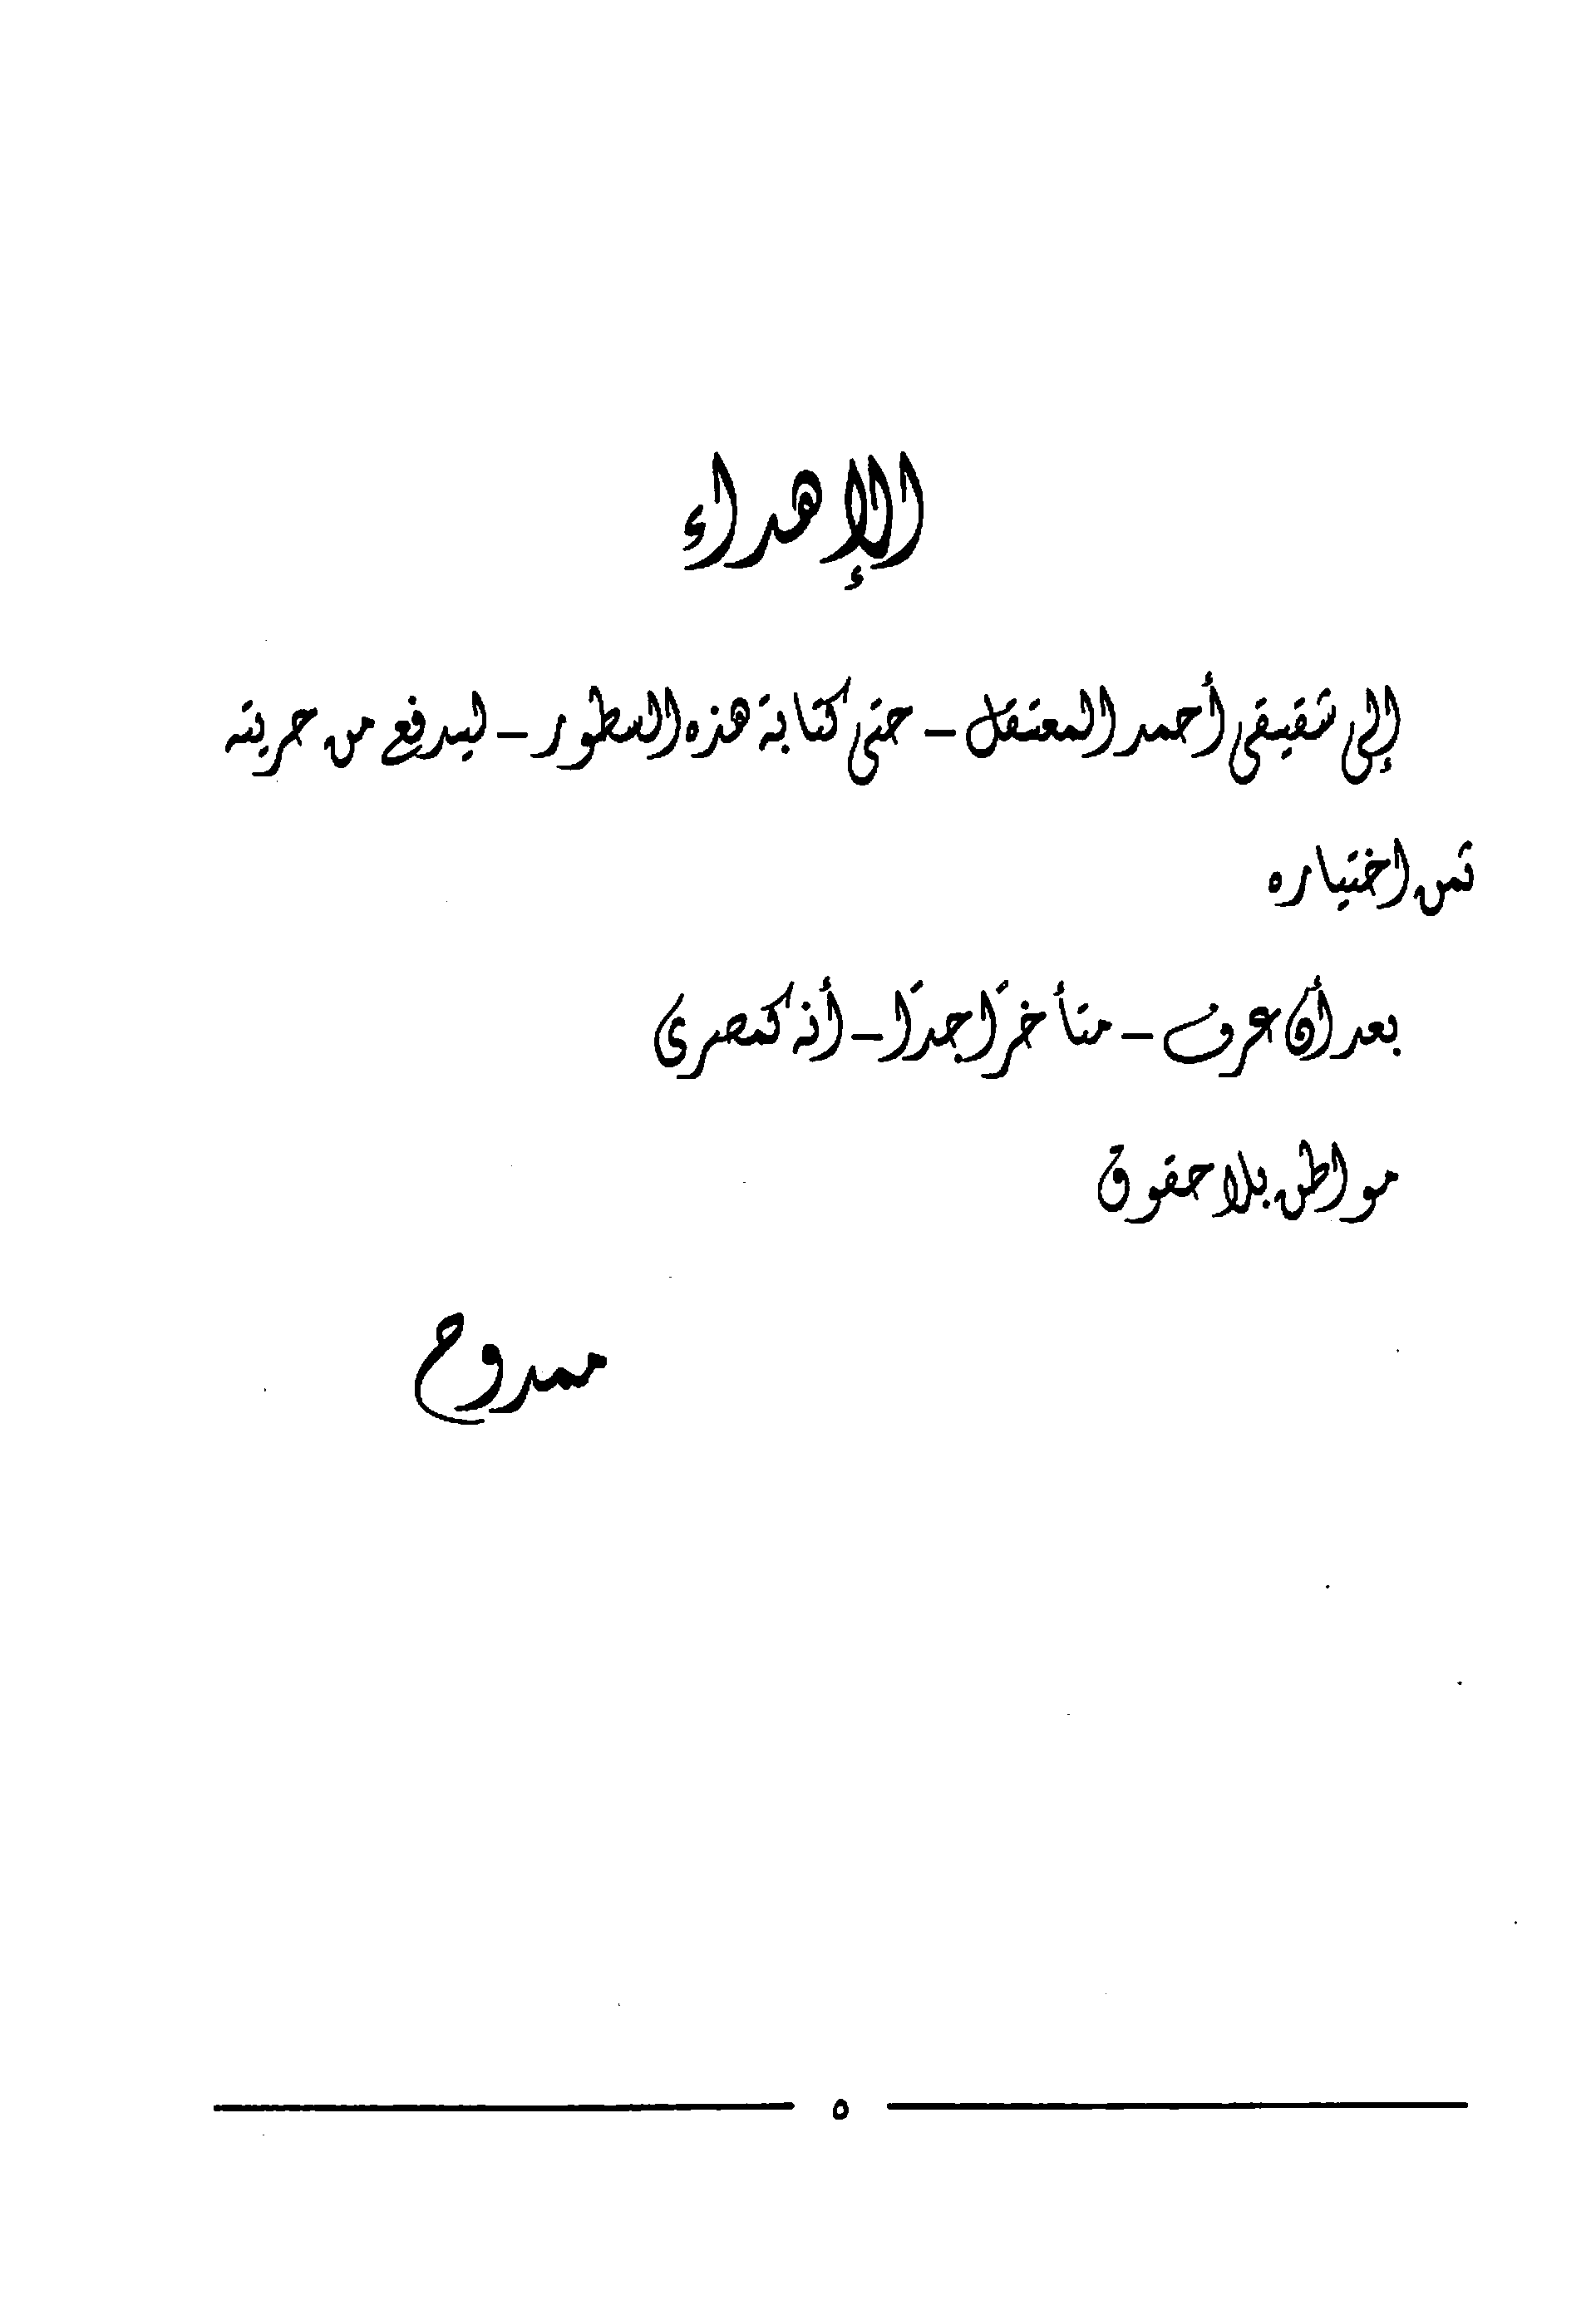 الإهداء
إلى شقيقى أحمد المعتقل – حتى كتابة هذه السطور – ليدفع من حريته
ثمن اختياره
بعد أن عرف – متأخرًا جدًا – أنه كمصرى
مواطن بلا حقوق
ممدوح
٥